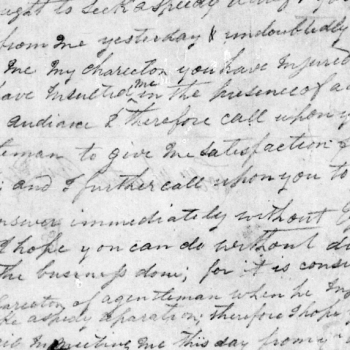 ought to seek a speedy
from me yesterday & undoubtedly
me My charector you have Injured
have Insulted me in the presence of a
audiance & therefore call upon y
tleman to give me satisfaction
and I further call upon you to
answer immediately without
I hope you can do without di
the business done; for it is consi
charector of agentleman when he Inj
ke aspedy reparation; therefore I hope
meeting me this day from